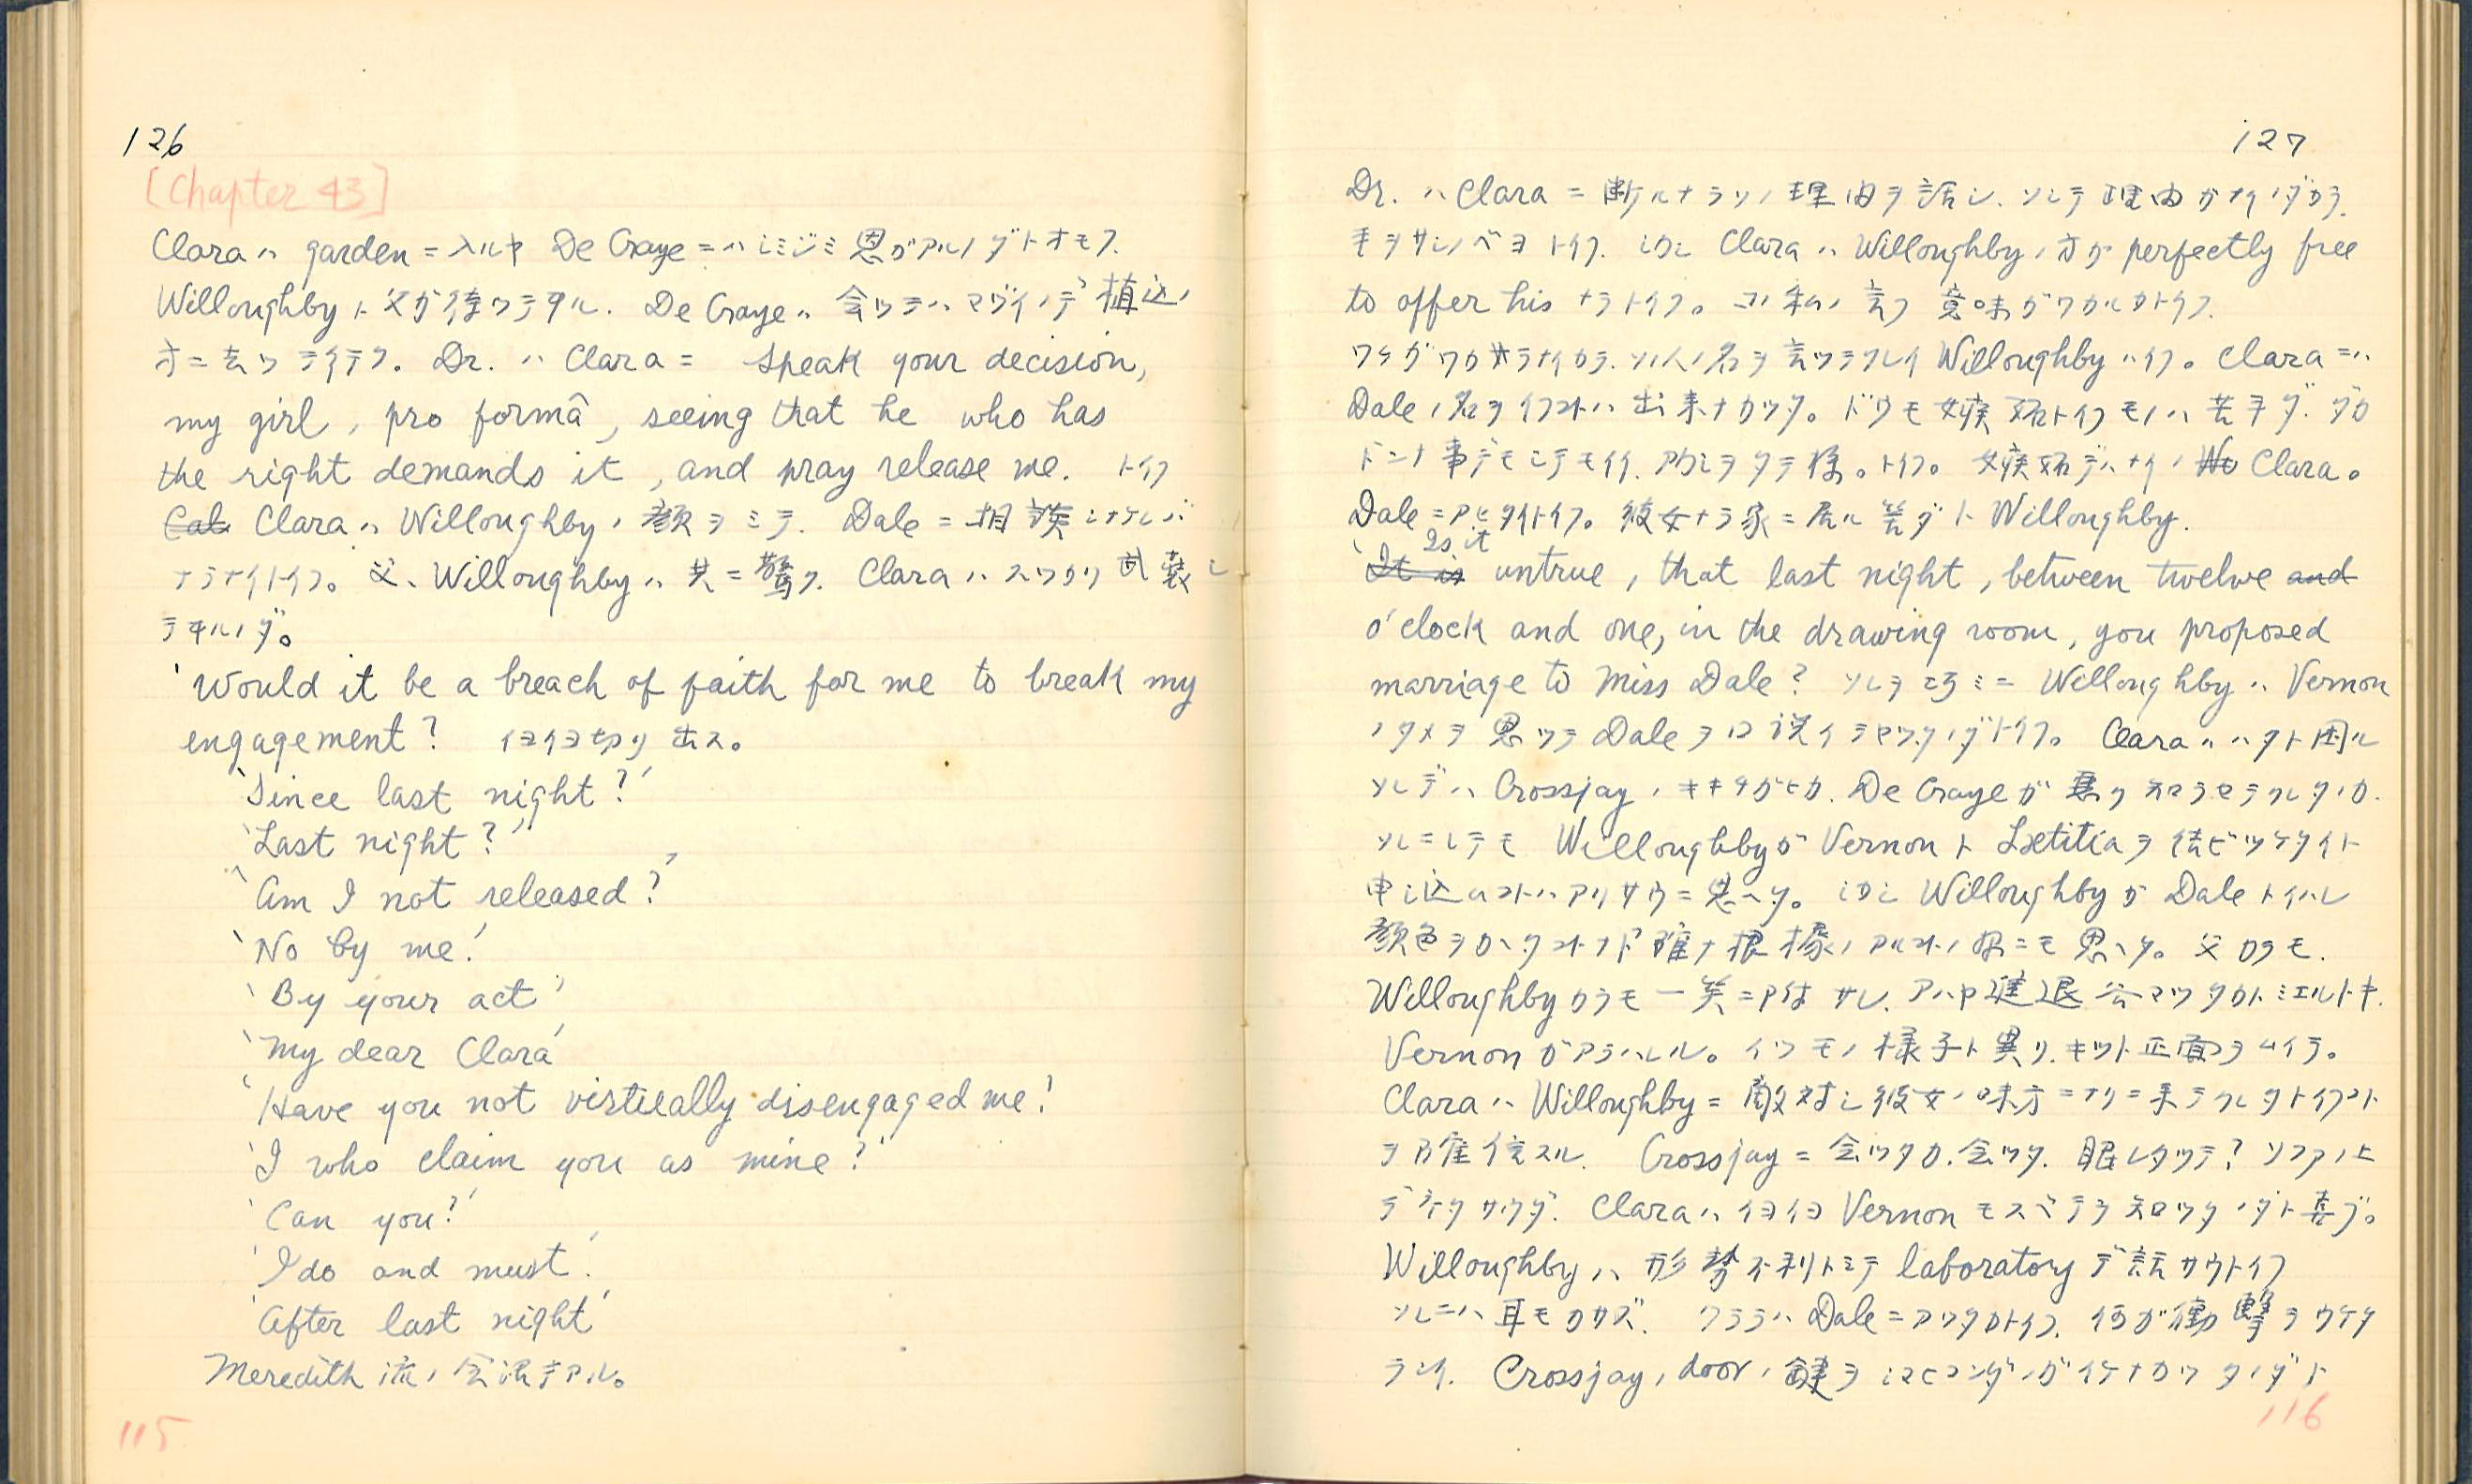 126
[Chapter 43]
Clara ハ garden ニ入ルヤ De Craye ニハシミジミ恩ガアルノダトオモフ.
Willoughby ト父ガ待ツテヰル. De Craye ハ会ツテハマヅイノデ植込ノ
方ニ去ツテイテク。 Dr. ハ Clara ニ Speak your decision,
my girl, pro formâ, seeing that he who has
the right demands it, and pray release me. トイフ
Clara ハ Willoughby ノ顔ヲミテ. Dale ニ相談シナケレバ
ナラナイトイフ。父、Willoughby ハ共ニ驚ク. Clara ハスツカリ武装シ
テヰルノダ。
'Would it be a breach of faith for me to break my
engagement? イヨイヨ切リ出ス。
'Since last night?'
'Last night?'
'Am I not released?'
'No by me.'
'By your act'
'My dear Clara'
'Have you not virtually disengaged me!
'I who claim you as mine?'
'Can you?'
'I do and must.'
'After last night'
Meredith 流ノ会話デアル。
115
127
Dr. ハ Clara ニ断ルナラソノ理由ヲ話シ. ソシテ理由ガナイノダカラ.
手ヲサシノベヨトイフ. シカシ Clara ハ Willoughby ノ方ガ perfectly free
to offer his ナラトイフ。コノ私ノ言フ意味ガワカルカトイフ.
ワケガワカラナイカラ. ソノ人ノ名ヲ言ツテクレイ Willoughby ハイフ。 Clara ニハ
Dale ノ名ヲイフコトハ出来ナカツタ。ドウモ嫉妬トイフモノハ苦手ダ. ダガ
ドンナ事デモシテモイイ. アカシヲタテ様。トイフ。嫉妬デハナイノ Clara。
Dale ニアヒタイトイフ。彼女ナラ家ニ居ル筈ダト Willoughby.
'Is it untrue, that last night, between twelve and
o'clock and one, in the drawing room, you proposed
marriage to Miss Dale? ソレヲ Willoughby ハ Vernon
ノタメヲ思ツテ Dale ヲ口説イテヤツタノダトイフ。 Clara ハハタト困ル
ソレデハ Crossjay ノキキチガヒカ. De Craye ガ知ラセテクレタノカ.
ソレニシテモ Willoughby ガ Vernon ト Lætitia ヲ結ビツケタイト
申シ込ムコトハアリサウニ思ヘタ。シカシ Willoughby ガ Dale トイハレ
顔色ヲカヘタコトナド確ナ根拠ノアルコトノ様ニモ思ヘタ。父カラモ.
Willoughby カラモ一笑ニ付サレ. アハヤ進退谷マツタカトミエルトキ.
Vernon ガアラハレル。イツモノ様子ト異リ. キツト正面ヲムイテ。
Clara ハ Willoughby ニ敵対シ彼女ノ味方ニナリニ来テクレタトイフコト
ヲ確信スル. Crossjay ニ会ツタカ. 会ツタ. 眠レタツテ? ソファノ上
デネタサウダ. Clara ハイヨイヨ Vernon モスベテヲ知ツタノダト喜ブ。
Willoughby ハ形勢不利トミテ laboratory デ話サウトイフ
ソレニハ耳モカサズ. クララハ Dale ニアツタカトイフ. 何ガ衝撃ヲウケタ
ラシイ. Crossjay ノ door ノ鍵ヲシマヒコンダノガイケナカツタノダト
116